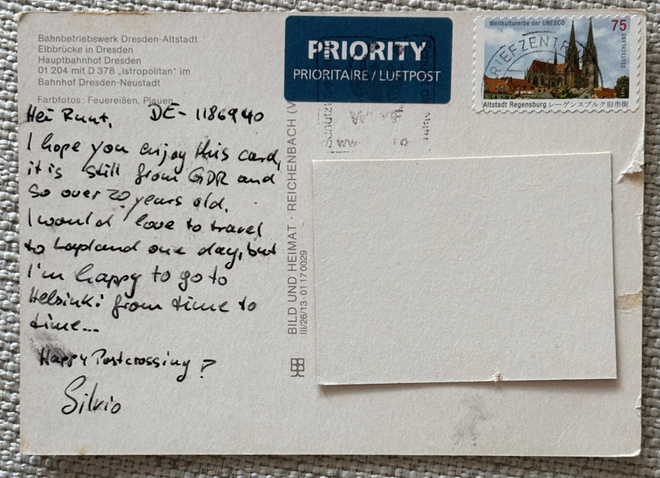 Bahnbetriebswerk Dresden-Altstadt
Elbbrücke in Dresden
Hauptbahnhof Dresden
01 204 mit D 378 „Istropolitan“ im
Bahnhof Dresden-Neustadt
Farbfotos: Feuereißen, Plauen
DE-1186940
I hope you enjoy this card,
it is still from GDR and
so over 20 years old.
I would love to travel
to Lapland one day, but
I'm happy to go to
Helsinki from time to
time...
Happy Postcrossing!
Silvio
BILD UND HEIMAT · REICHENBACH (V
III/26/13 · 01 17 0029
PRIORITY
PRIORITAIRE / LUFTPOST
Weltkulturerbe der UNESCO
75
DEUTSCHLAND
BRIEFZENTR
Altstadt Regensburg レーゲンスブルク旧市街